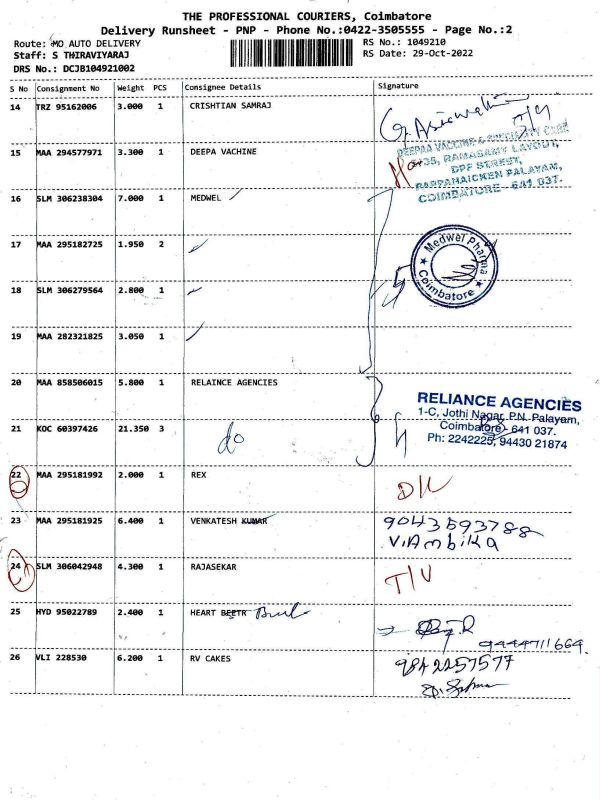 THE PROFESSIONAL COURIERS, Coimbatore
Delivery Runsheet - PNP - Phone No.:0422-3505555 - Page No.:2
Route: MO AUTO DELIVERY RS No.: 1049210
Staff: S THIRAVIYARAJ RS Date: 29-Oct-2022
DRS No.: DCJB104921002
S No Consignment No Weight PCS Consignee Details Signature
14 TRZ 95162006 3.000 1 CRISHTIAN SAMRAJ
15 MAA 294577971 3.300 1 DEEPA VACHINE
DEEPAA VACCINE & SPECIALITY CARE
RAMASAMY LAYOUT,
DPF STREET,
PAPPANAICKEN PALAYAM,
COIMBATORE - 641 037.
16 SLM 306238304 7.000 1 MEDWEL
17 MAA 295182725 1.950 2
Medwel Pharma
Coimbatore
18 SLM 306279564 2.800 1
19 MAA 282321825 3.050 1
20 MAA 858506015 5.800 1 RELAINCE AGENCIES
RELIANCE AGENCIES
1-C, Jothi Nagar, P.N. Palayam,
Coimbatore - 641 037.
Ph: 2242225, 94430 21874
21 KOC 60397426 21.350 3 do
22 MAA 295181992 2.000 1 REX D/L
23 MAA 295181925 6.400 1 VENKATESH KUMAR 9043593788
V.Ambika
24 SLM 306042948 4.300 1 RAJASEKAR T/V
25 HYD 95022789 2.400 1 HEART BEETR
9444711664
26 VLI 228530 6.200 1 RV CAKES 9842257577